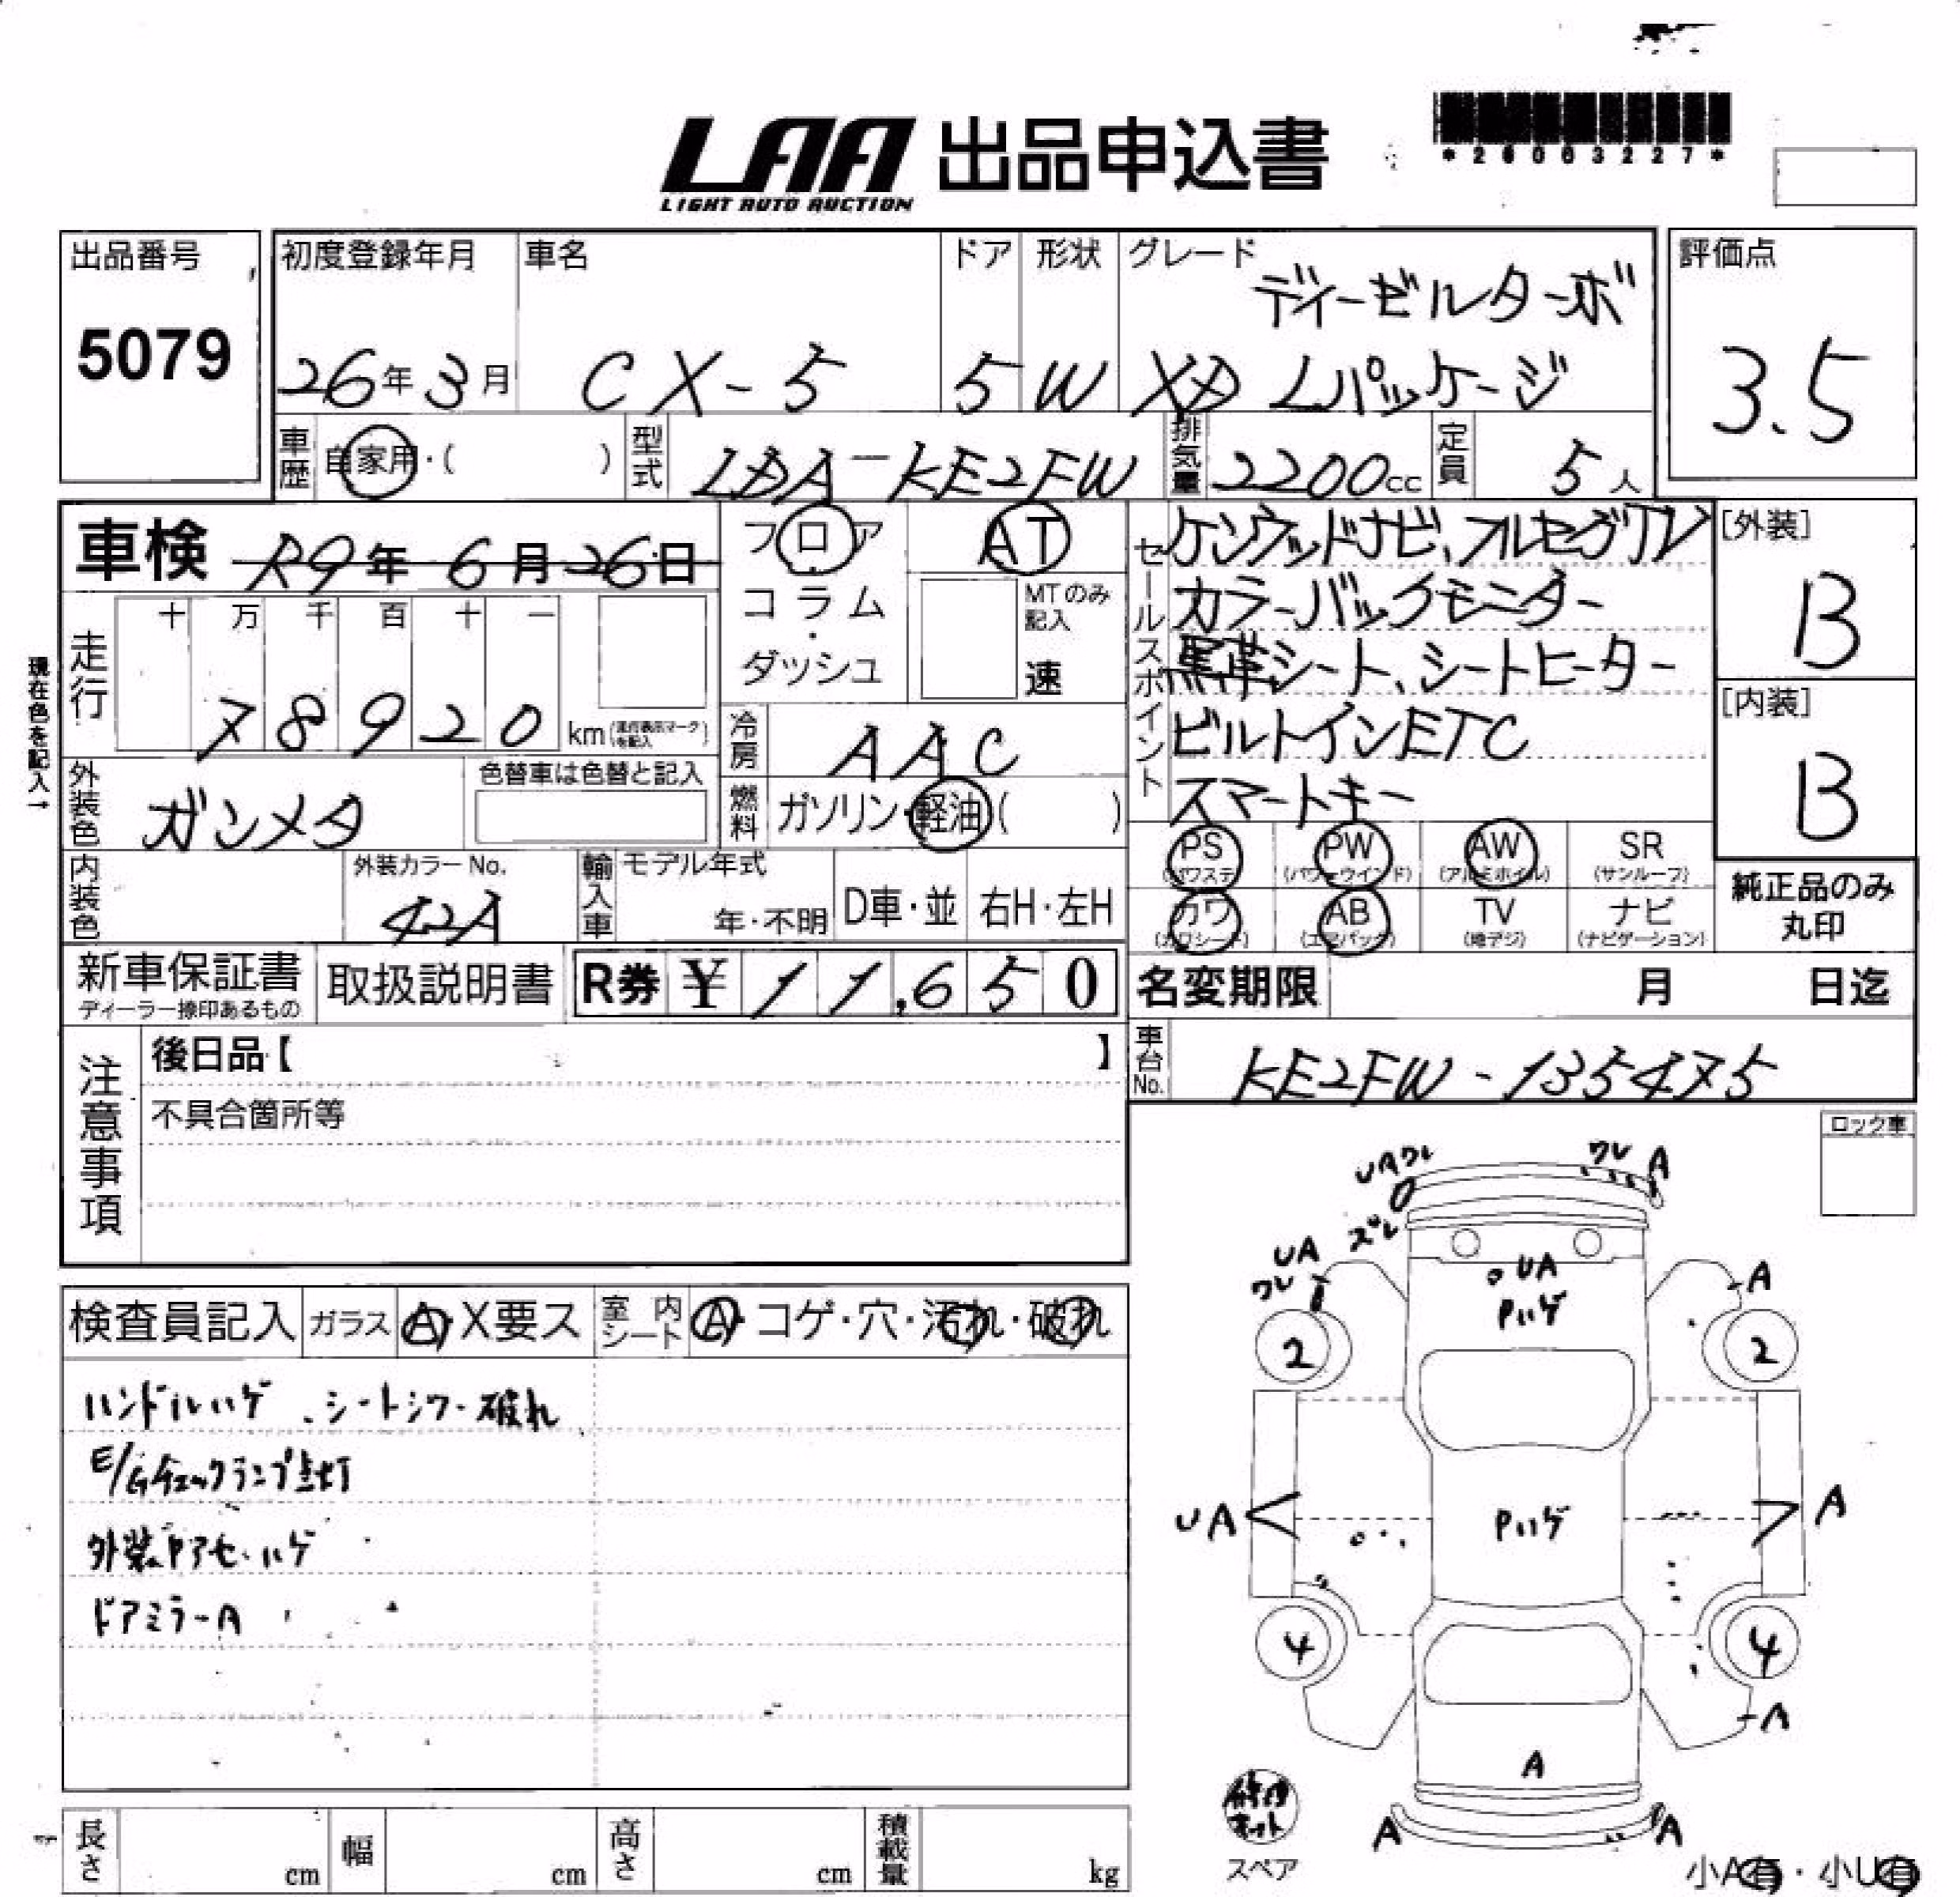 LAA 出品申込書
LIGHT AUTO AUCTION
*26003227*
出品番号
5079
初度登録年月
26年3月
車名
CX-5
ドア
5
形状
W
グレード
ディーゼルターボ
XD Lパッケージ
評価点
3.5
車歴 自家用・( )
型式 LDA-KE2FW
排気量 2200cc
定員 5人
車検 R9年6月26日
フロア・コラム・ダッシュ
AT
MTのみ記入
速
セールスポイント
ケンウッドナビ、フルセグTV
カラーバックモニター
黒革シート、シートヒーター
ビルトインETC
スマートキー
[外装]
B
[内装]
B
現在色を記入→
走行
十 万 千 百 十 一
78920 km(走行表示マークを記入)
冷房 AAC
外装色 ガンメタ
色替車は色替と記入
燃料 ガソリン・軽油( )
内装色
外装カラーNo.
42A
輸入車
モデル年式
年・不明
D車・並
右H・左H
PS (パワステ)
PW (パワーウインド)
AW (アルミホイル)
SR (サンルーフ)
カワ (カワシート)
AB (エアバッグ)
TV (地デジ)
ナビ (ナビゲーション)
純正品のみ
丸印
新車保証書
ディーラー捺印あるもの
取扱説明書
R券 ¥11,650
名変期限 月 日迄
注意事項
後日品【 】
不具合箇所等
車台No. KE2FW-135475
ロック車
検査員記入
ガラス A・X要ス
室内シート A・コゲ・穴・汚れ・破れ
ハンドルハゲ、シートシワ・破れ
E/Gチェックランプ点灯
外装Pアセ・ハゲ
ドアミラーA
UAワレ
ワレ A
ズレ
UA
ワレ
UA
Pハゲ
A
2
2
UA
Pハゲ
A
4
4
A
A
A
A
修理キット
スペア
小A有・小U有
長さ cm
幅 cm
高さ cm
積載量 kg